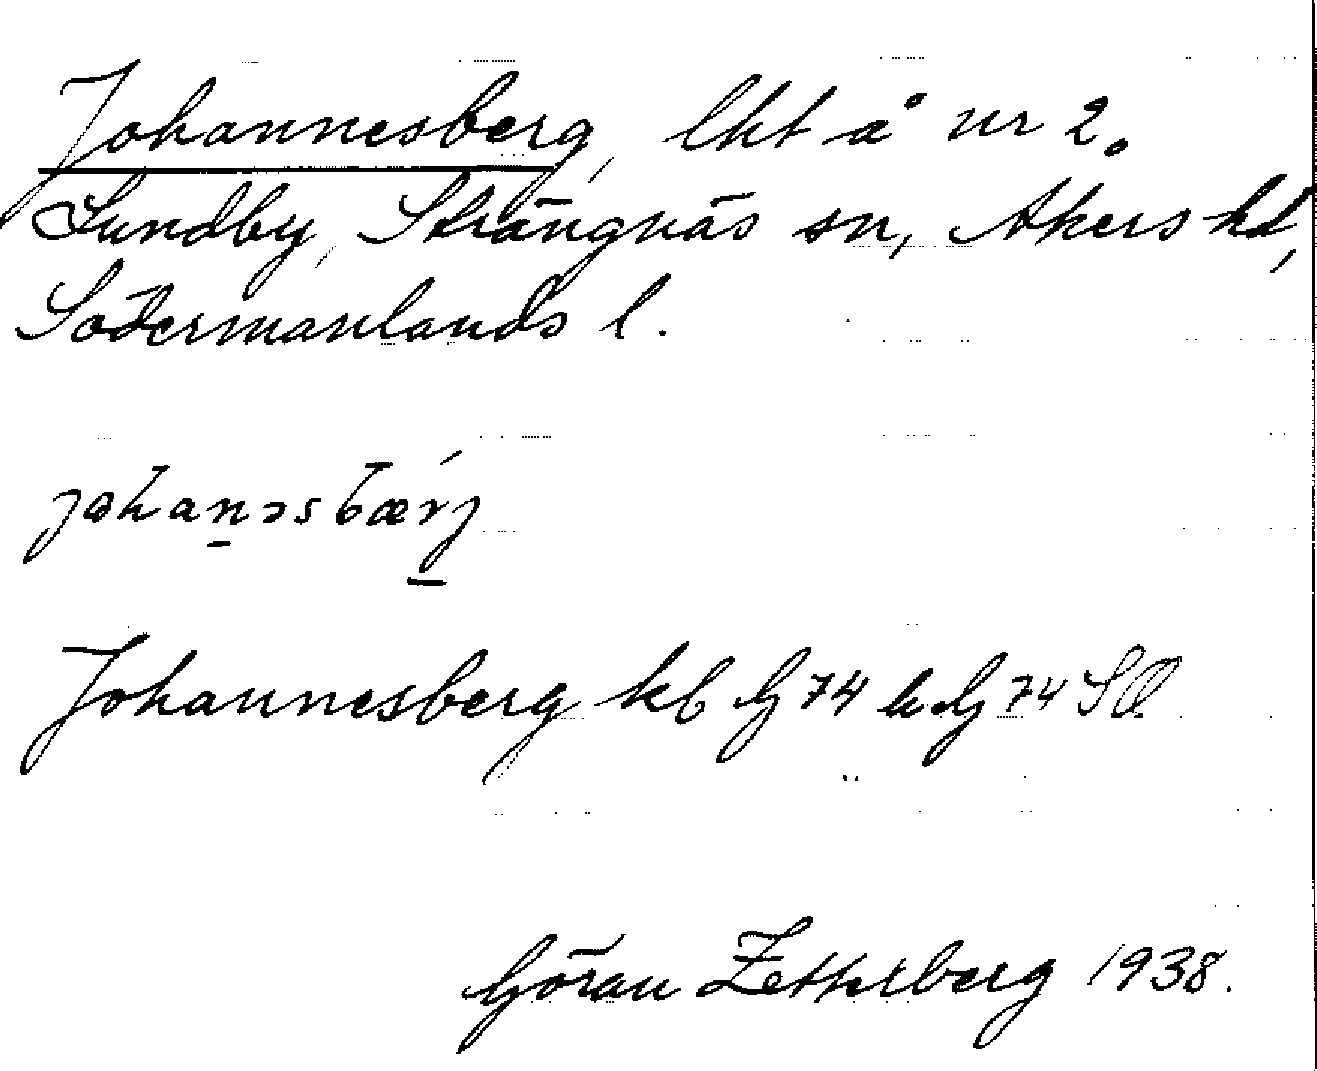 Johannesberg, lht å nr 2.
Sundby, Strängnäs sn, Åkers hd,
Södermanlands l.
johanəsbærj
Johannesberg kb G 74 k G 74 SO
Göran Zetterberg 1938.